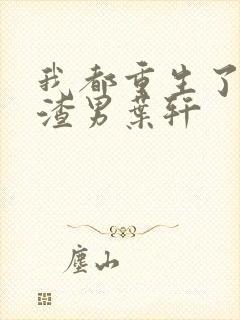 我都重生了
渣男葉轩
塵山